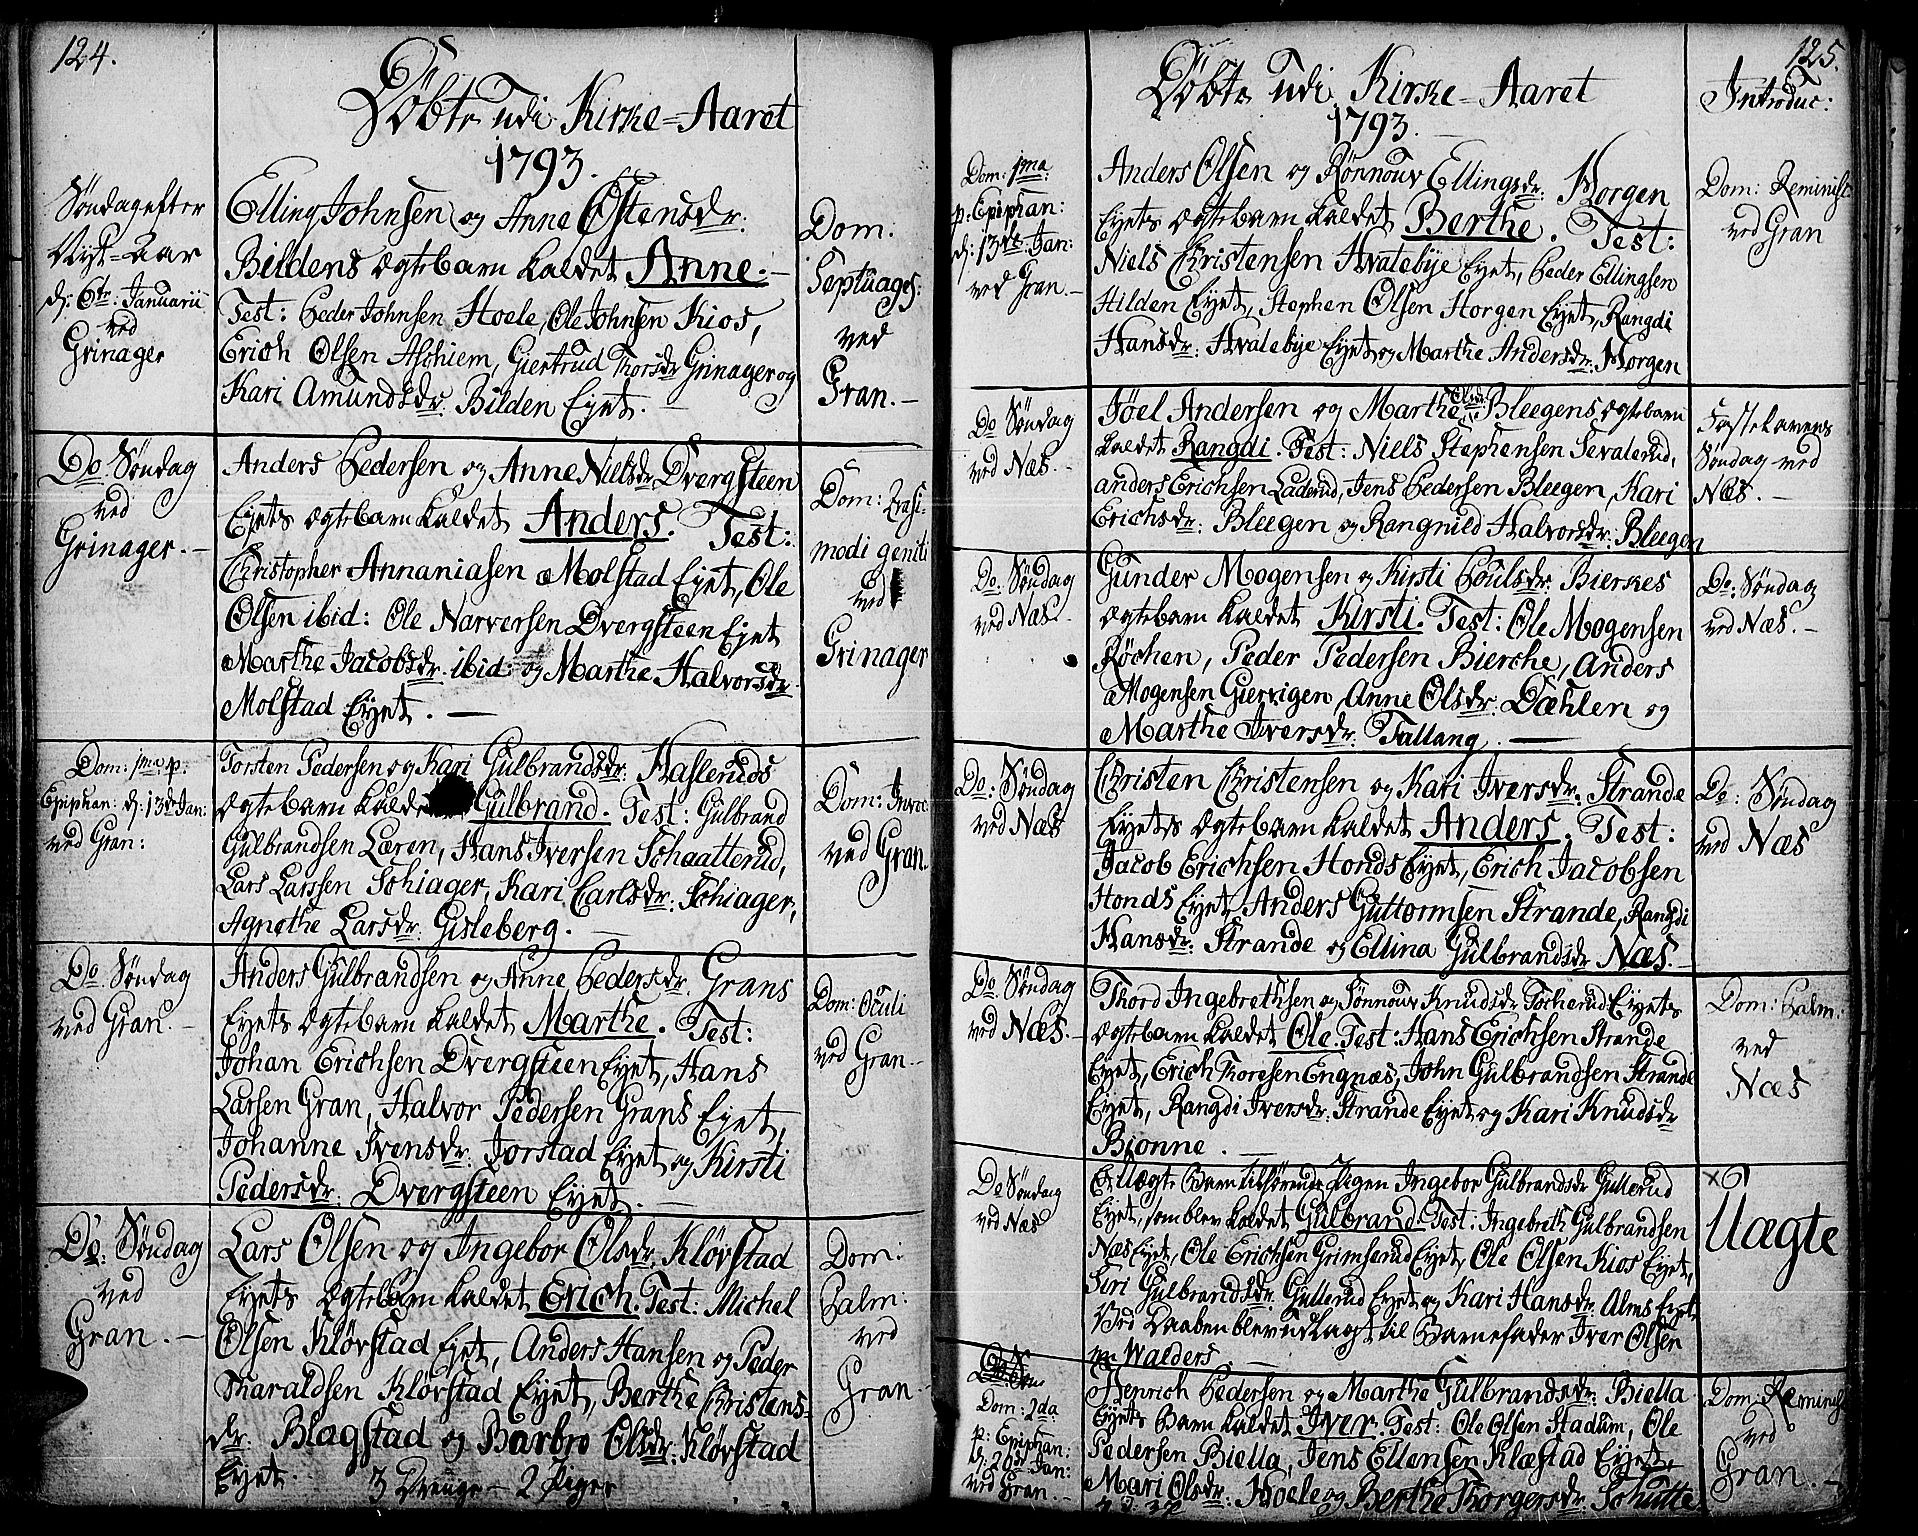 124.
Döbte udi Kirke=Aaret
1793.
Söndag efter
Nyt=aar
d: 6te: Januarii
ved
Grinager
Elling Johnsen og Anne Östensdr:
Bildens ægtebarn kaldet Anne. –
Test: Peder Johnsen Hoele, Ole Johnsen Kios,
Erich Olsen Aschiem, Giertrud Thorsdr Grinager og
Kari Amundsdr. Bilden Eyet. –
Dom:
Septuages:
ved
Gran. –
Do Söndag
ved
Grinager. –
Anders Pedersen og Anne Nielsdr Dvergsteen
Eyets ægtebarn kaldet Anders. Test:
Christopher Annaniasen Molstad Eyet, Ole
Olsen ibid: Ole Narversen Dvergsteen Eyet
Marthe Jacobsdr. ibid: og Marthe Halvorsdr
Molstad Eyet. –
Dom: Qvasi-
modi geniti
ved
Grinager
Dom: 1ma p.
Epiphan: d: 13de Jan:
ved Gran:
Torsten Pedersen og Kari Gulbrandsdr: Hasleruds
ægtebarn kaldet Gulbrand. Test: Gulbrand
Gulbrandsen Læren, Hans Iversen Schaatterud,
Lars Larssen Schiager, Kari Carlsdr: Schiager,
Agnethe Larsdr. Gisleberg. –
Dom: Invoc:
ved Gran.
Do Söndag
ved Gran. –
Anders Gulbrandsen og Anne Pedersdr. Grans
Eyets ægtebarn kaldet Marthe. Test:
Johan Erichsen Dvergsteen Eyet, Hans
Larsen Gran, Halvor Pedersen Grans Eyet,
Johanne Svensdr: Jorstad Eyet og Kirsti
Pedersdr: Dvergsteen Eyet. –
Dom: Oculi
ved Gran –
Do: Söndag
ved
Gran. –
Lars Olsen og Ingebor Olsdr. Klövstad
Eyets ægtebarn kaldet Erich. Test: Michel
Olsen Klövstad Eyet, Anders Hansen og Peder
Haraldsen Klövstad Eyet, Berthe Christens-
dr: Blagstad og Barbro Olsdr: Klövstad
Eyet.
3 Drenge – 2 Piger
Dom:
Palm:
ved
Gran –
125.
Döbte udi Kirke=Aaret
1793.
Introduc:
Dom: 1ma:
p: Epiphan:
d: 13de Jan:
ved Gran. –
Anders Olsen og Rönnouv Ellingsdr: Horgen
Eyets ægtebarn kaldet Berthe. Test:
Niels Christensen Hvalebye Eyet, Peder Ellingsen
Hilden Eyet, Stephen Olsen Horgen Eyet, Rangdi
Hansdr: Hvalebye Eyet og Marthe Andersdr: Horgen
Dom: Reminisc:
ved Gran
Do Söndag
ved Næs. –
Jöel Andersen og Marthe Olsdr: Bleegens ægtebarn
kaldet Rangdi. Test: Niels Stephensen Sevalerud,
anders Erichsen Laderud, Jens Pedersen Bleegen, Kari
Erichsdr: Bleegen og Rangnild Halvorsdr: Bleegen
Fastelavens
Söndag ved
Næs. –
Do: Söndag
ved Næs. –
Gunder Mogensen og Kirsti Poulsdr: Bierkes
ægtebarn kaldet Kirsti. Test: Ole Mogensen
Röchen, Peder Pedersen Bierche, Anders
Mogensen Gierrigen, Anne Olsdr: Dæhlen og
Marthe Iversdr: Tallang. –
Do: Söndag
ved Næs. –
Do: Söndag
ved Næs
Christen Christensen og Kari Iversdr. Strande
Eyets ægtebarn kaldet Anders. Test:
Jacob Erichsen Honds Eyet, Erich Jacobsen
Honds Eyet, Anders Guttormsen Strande, Rangdi
Hansdr: Strande og Ellina Gulbrandsdr Næs. –
Do: Söndag
ved Næs
Do: Söndag
ved Næs. –
Thord Ingebrethsen og Sönnouv Knudsdr Socherud Eyets
ægtebarn kaldet Ole. Test: Hans Erichsen Strande
Eyet, Erich Thoresen Engnæs, John Gulbrandsen Strande
Eyet, Rangdi Iversdr: Strande Eyet og Kari Knudsdr
Bionne. –
Dom: Palm:
ved
Næs
Do Söndag
ved Næs
Et Uægte Barn tilhörende Pigen Ingebor Gulbrandsdr Gullerud
Eyet, som blev kaldet Gulbrand. Test: Ingebreth Gulbrandsen
Næs Eyet, Ole Erichsen Grimserud Eyet, Ole Olsen Kios Eyet,
Siri Gulbrandsdr: Gullerud Eyet og Kari Hansdr: Alms Eyet
Ved Daaben blev udlagt til Barnefader Iver Olsen
Walders –
Uægte
Dom: 2da
p: Epiphan:
d: 20de Jan:
ved Gran. –
Henrich Pedersen og Marthe Gulbrandsdr: Biella
Eyets Barn kaldet Iver. Test: Ole Olsen Stadum, Ole
Pedersen Biella, Jens Ellensen Klæstad Eyet
Mari Olsdr: Hoele og Berthe Thorgersdr: Schutte
Dom: Reminisc:
ved
Gran. –